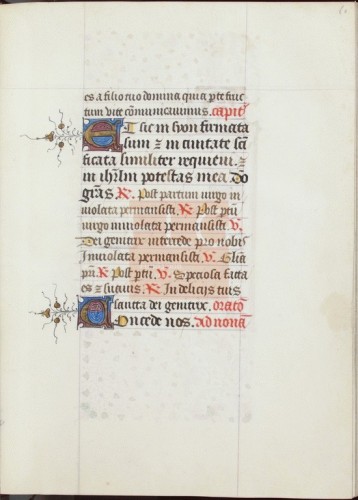 es a filio tuo domina quia per te fruc
tum vite cōmunicavimus. capitl'
Et sic in syon firmata
sum ⁊ in civitate scī
ficata similiter requievi. ⁊
in ihrlm̄ potestas mea Do
grās R. Post partum virgo in
violata permansisti. R. Post ptū
virgo inviolata permansisti. V.
Dei genitrix intercede pro nobis
Inviolata permansisti. V. Glīa
pr̄i. R. Post ptū. V. Speciosa facta
es ⁊ suavis. R. In deliciis tuis
sancta dei genitrix. oratio
Concede nos. Ad nonā